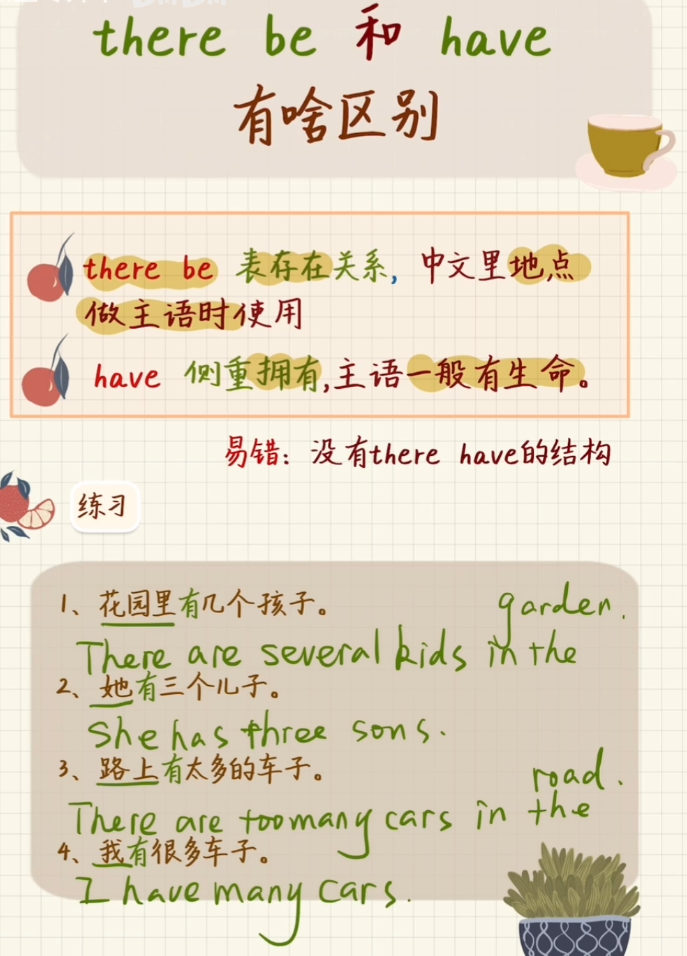 there be 和 have
有啥区别
there be 表存在关系, 中文里地点
做主语时使用
have 侧重拥有,主语一般有生命。
易错: 没有there have的结构
练习
1、花园里有几个孩子。
garden.
There are several kids in the
2、她有三个儿子。
She has three sons.
3、路上有太多的车子。
road.
There are too many cars in the
4、我有很多车子。
I have many cars.